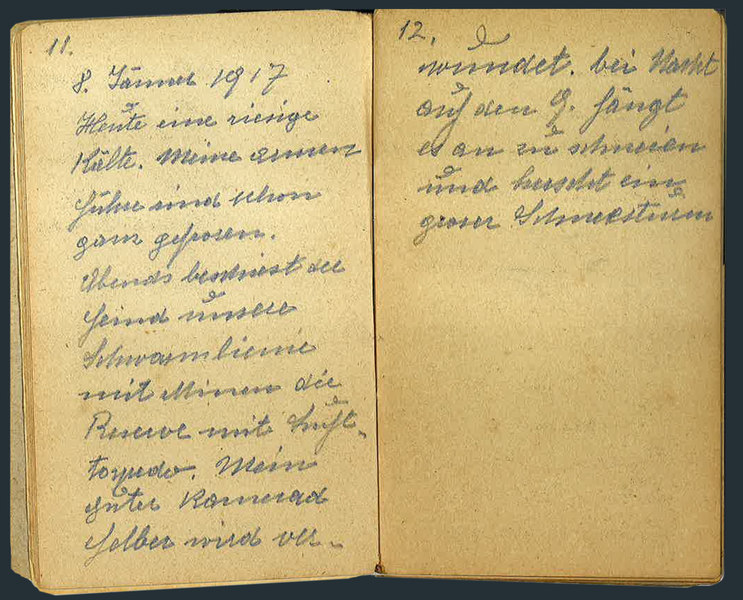 11.
8. Jänner 1917
Heute eine riesige
Kälte. Meine armen
Führe sind schon
ganz gefroren.
Abends beschiest der
Feind unsere
Schwarmlienie
mit Minen die
Reserve mit Luft-
torpedo. Mein
guter Kamerad
Felber wird ver-
12.
wundet. bei Nacht
auf den 9. fängt
es an zu schneien
und herscht ein
groser Schneesturm